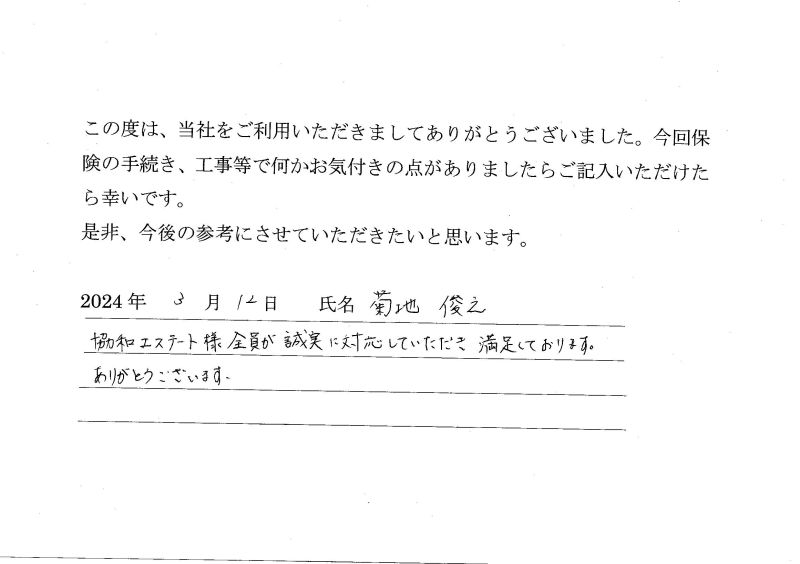 この度は、当社をご利用いただきましてありがとうございました。今回保
険の手続き、工事等で何かお気付きの点がありましたらご記入いただけた
ら幸いです。
是非、今後の参考にさせていただきたいと思います。
2024年 3月12日 氏名 菊地 俊之
協和エステート様全員が誠実に対応していただき満足しております。
ありがとうございます.